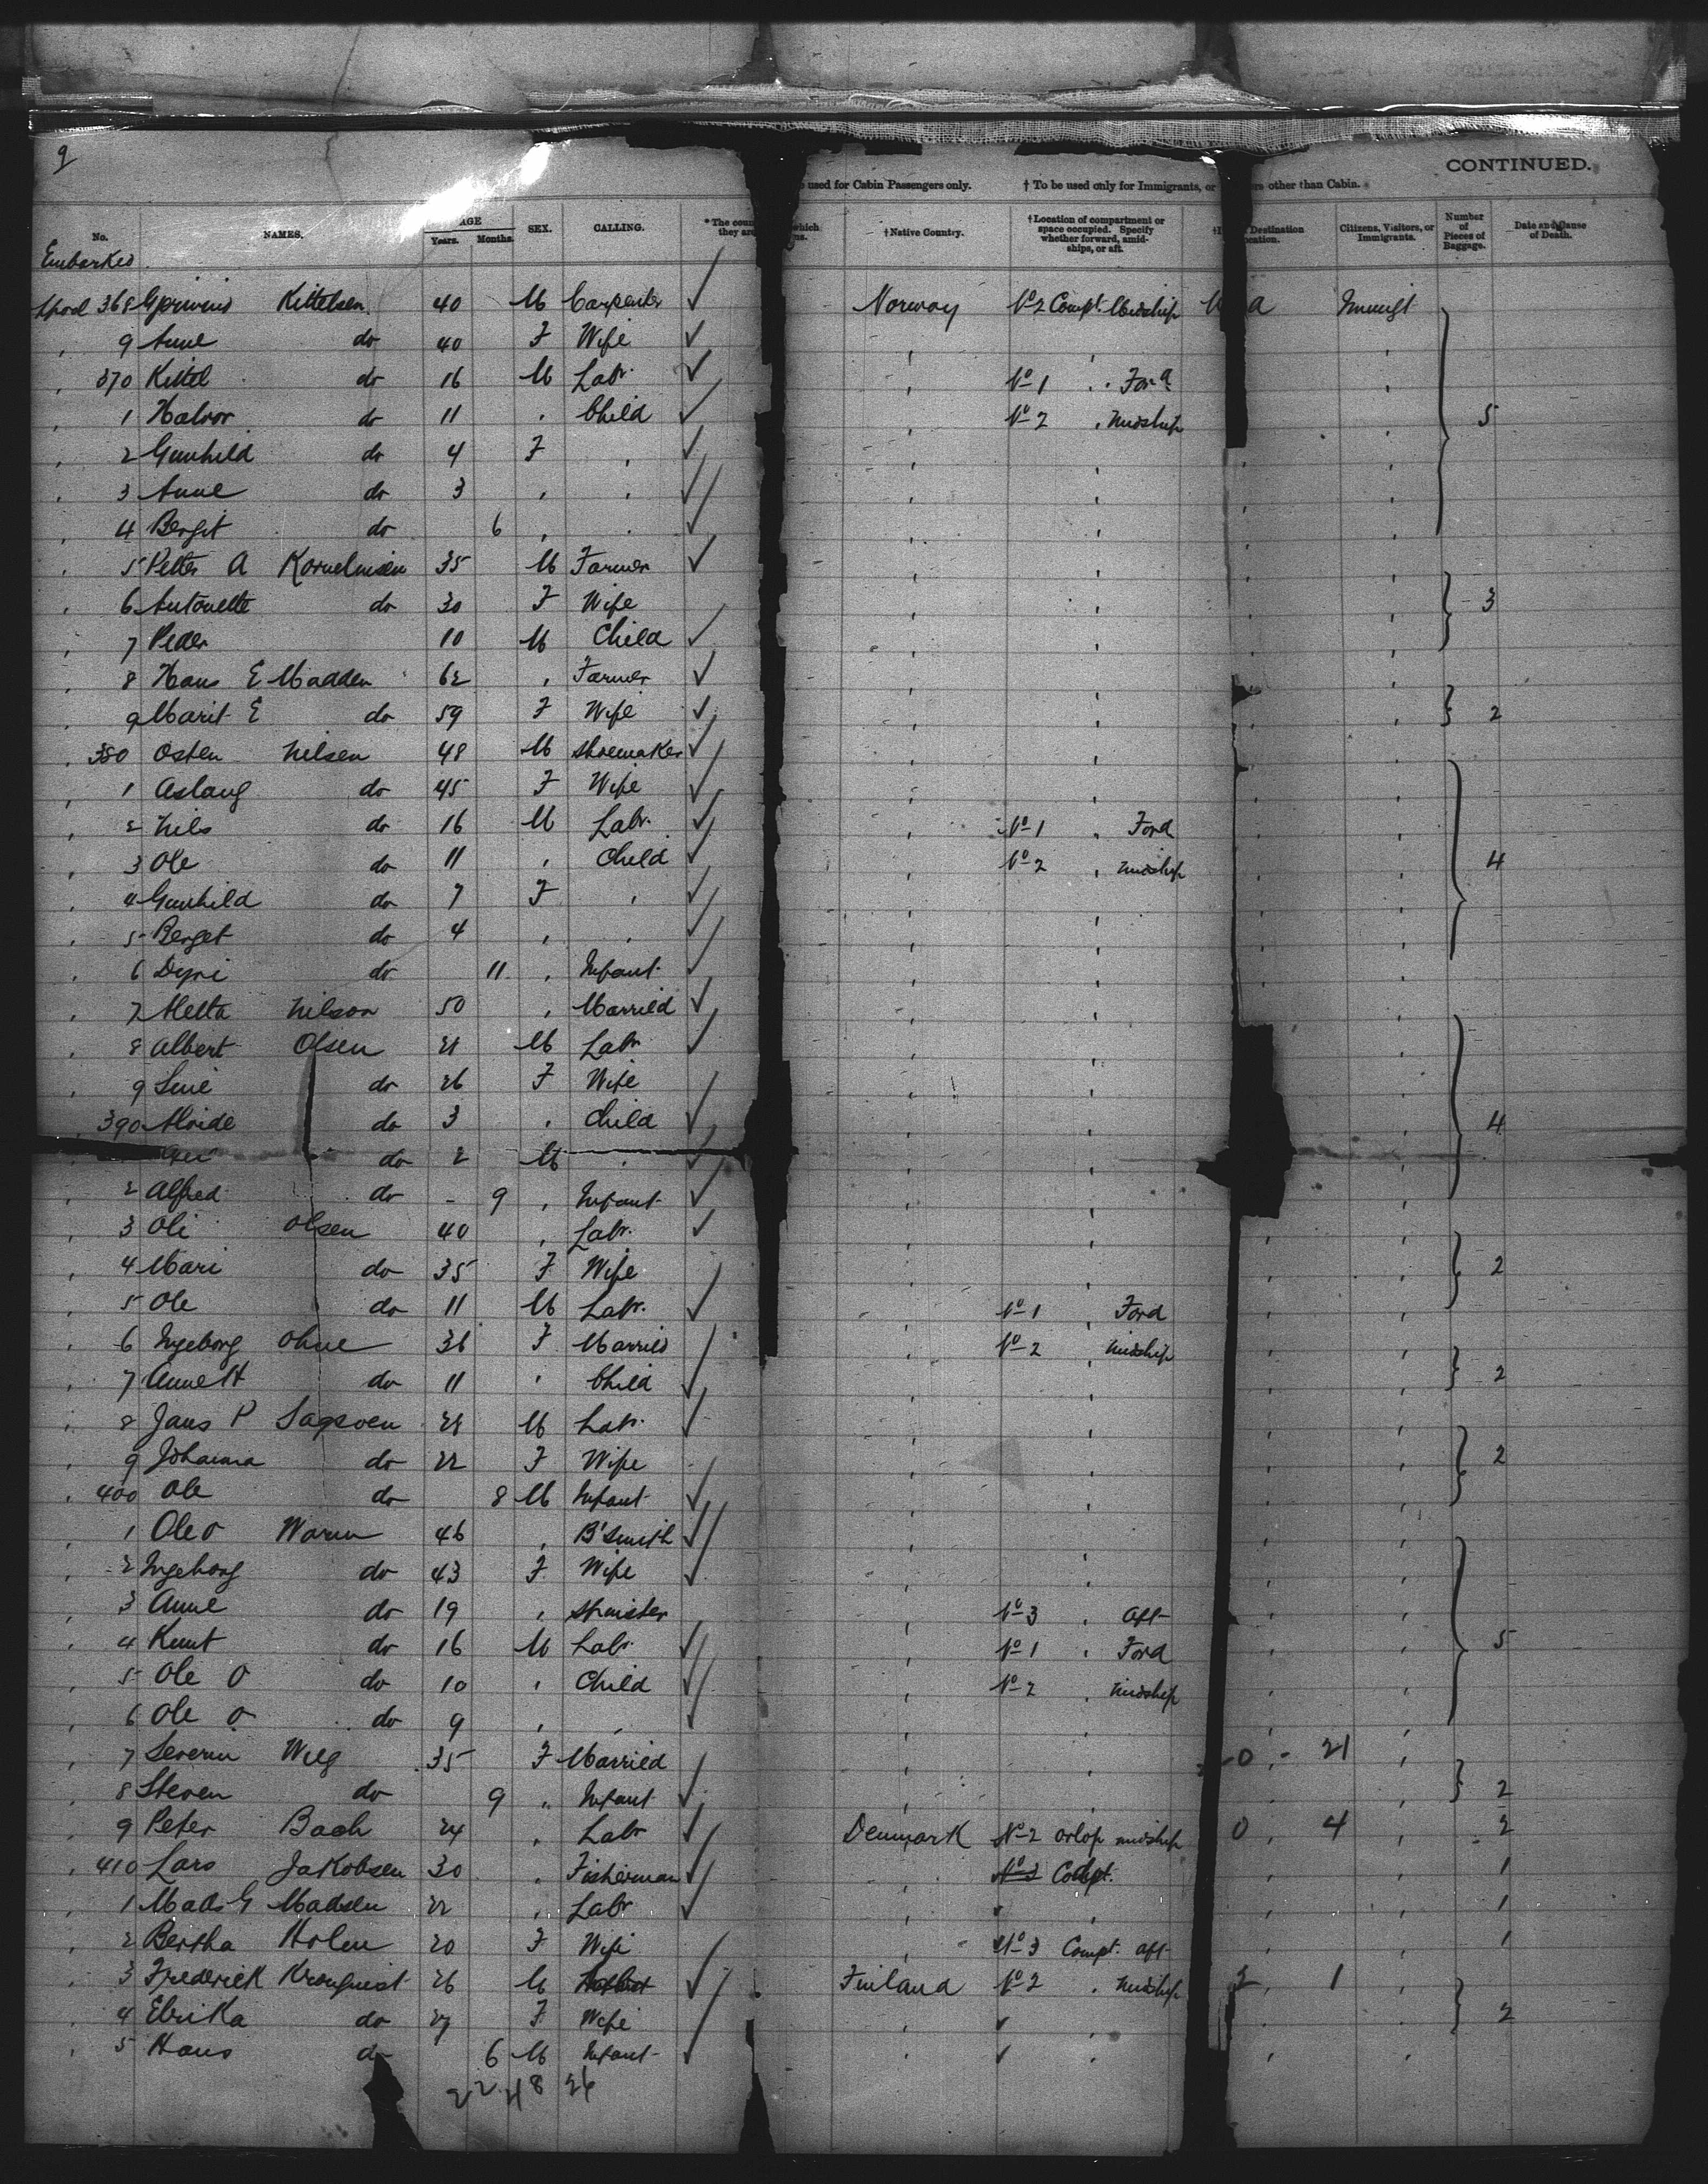 9
CONTINUED.
used for Cabin Passengers only. † To be used only for Immigrants, or other than Cabin.
No. NAMES. AGE Years. Months. SEX. CALLING. *The coun they are which †Native Country. †Location of compartment or space occupied. Specify whether forward, amidships, or aft. Destination Citizens, Visitors, or Immigrants. Number of Pieces of Baggage. Date and Cause of Death.
Embarked
368 Kittelsen 40 M Carpenter ✓ Norway No 2 Compt. Midship
9 Anne do 40 F Wife ✓
370 Kittel do 16 M Labr. ✓ No 1 Ford
1 Halvor do 11 " Child ✓ No 2 " Midship 5
2 Gunhild do 4 F " ✓
3 Anne do 3 " " ✓
4 Bergit do 6 " " ✓
5 Petter A Korneliusen 35 M Farmer ✓
6 Antonette do 30 F Wife 3
7 Peder 10 M Child ✓
8 Hans E Madden 62 " Farmer ✓
9 Marit E do 59 F Wife ✓ 2
380 Osten Nilsen 48 M Shoemaker ✓
1 Aslaug do 45 F Wife ✓
2 Nils do 16 M Labr. ✓ No 1 " Ford
3 Ole do 11 " Child ✓ No 2 " Midship 4
4 Gunhild do 7 F " ✓
5 Berget do 4 " " ✓
6 Dyri do 11 " Infant ✓
7 Metta Nilson 50 " Married ✓
8 Albert Olsen M Labr ✓
9 Sine do 26 F Wife
390 do 3 " Child ✓ 4
do 2 M " ✓
2 Alfred do - 9 " Infant ✓
3 Oli Olsen 40 " Labr. ✓
4 Mari do 35 F Wife 2
5 Ole do 11 M Labr. ✓ No 1 " Ford
6 Ingeborg Ohne 36 F Married No 2 " Midship
7 Anne H do 11 " Child ✓ 2
8 Jans P M Labr. ✓
9 Johanna do 22 F Wife 2
400 Ole do 8 M Infant ✓
1 Ole O Warum 46 " B'smith ✓
2 Ingeborg do 43 F Wife ✓
3 Anne do 19 " Spinster No 3 " Aft
4 Knut do 16 M Labr ✓ No 1 " Ford 5
5 Ole O do 10 " Child ✓ No 2 " Midship
6 Ole O do 9 " " ✓
7 Severin Wilg 35 F Married 0 - 21
8 Steven do 9 " Infant ✓ 2
9 Peter Bach 24 " Labr ✓ Denmark No 2 Orlop midship 0 " 4 2
410 Lars Jakobsen 30 " Fisherman ✓ No 2 Compt. 1
1 Mads G Madsen 22 " Labr ✓ 1
2 Bertha Holm 20 F Wife No 3 Compt. aft 1
3 Frederick Kronquist 26 M ✓ Finland No 2 " Midship 1
4 Elrika do 27 F Wife 2
5 Hans do 6 M Infant ✓